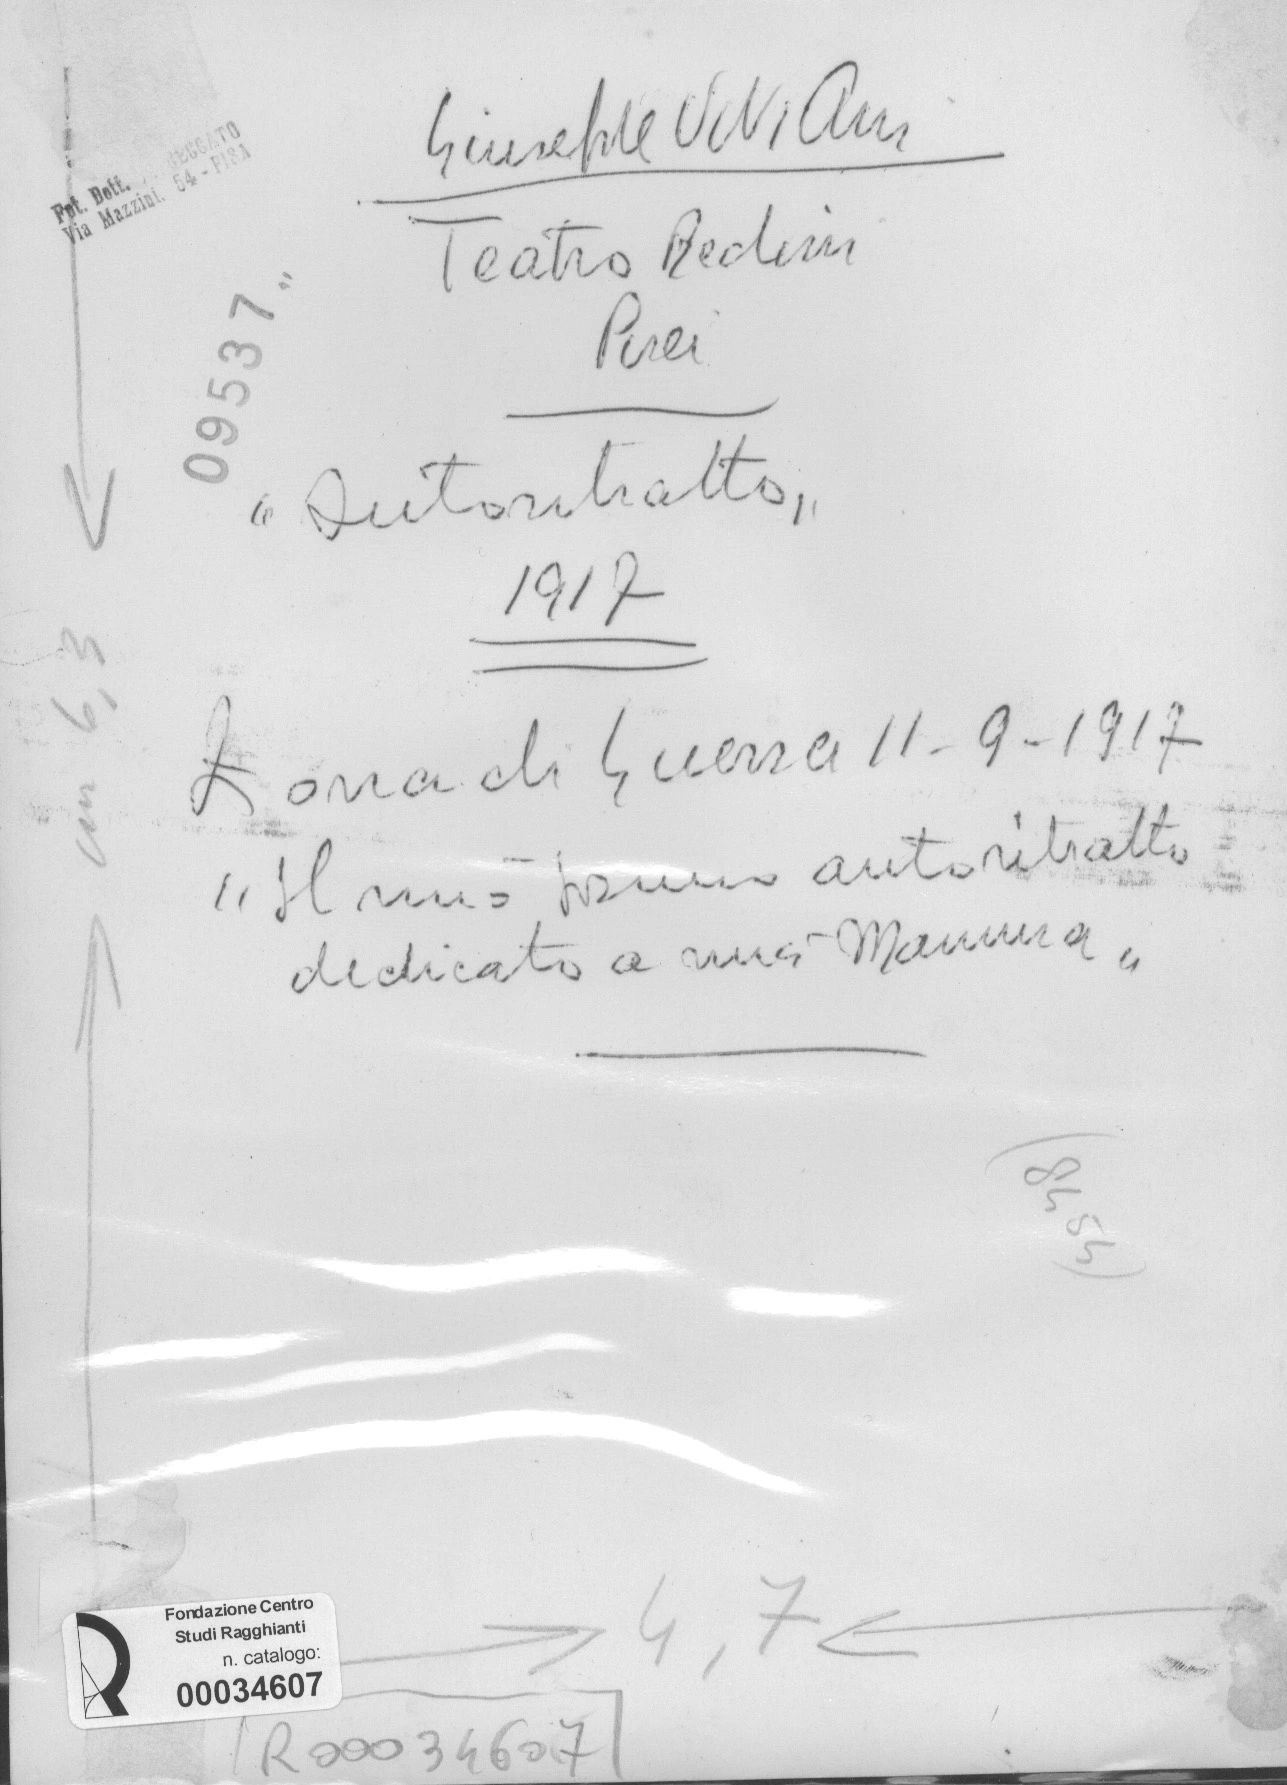 Giuseppe ViViAni
Teatro Redini
Fot. Dott.
Via Mazzini, 54 - PISA
09537
"Autoritratto"
1917
cm 6,3
Zona di Guerra 11-9-1917
"Il mio primo autoritratto
dedicato a mia Mamma"
Fondazione Centro
Studi Ragghianti
n. catalogo:
00034607
4,7
R00034607